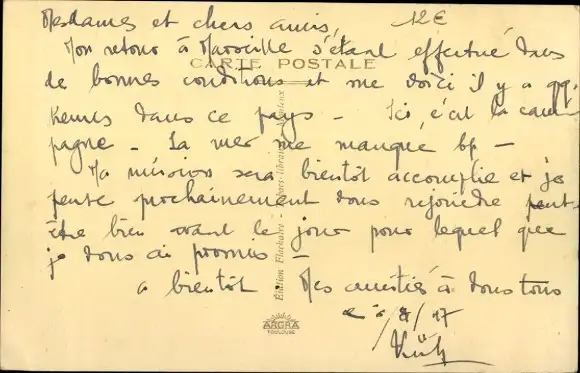 Mesdames et chers amis, 12€
Mon retour à Marseille s'étant effectué dans
CARTE POSTALE
de bonnes conditions et me voici il y a qq.
heures dans ce pays - Ici, c'est la cam
pagne - La mer me manque bp -
Ma mission sera bientôt accomplie et je
pense prochainement vous rejoindre peut-
être bien avant le jour pour lequel que
je vous ai promis -
a bientôt. Mes amitiés à vous tous
Edition
ARGRA
TOULOUSE